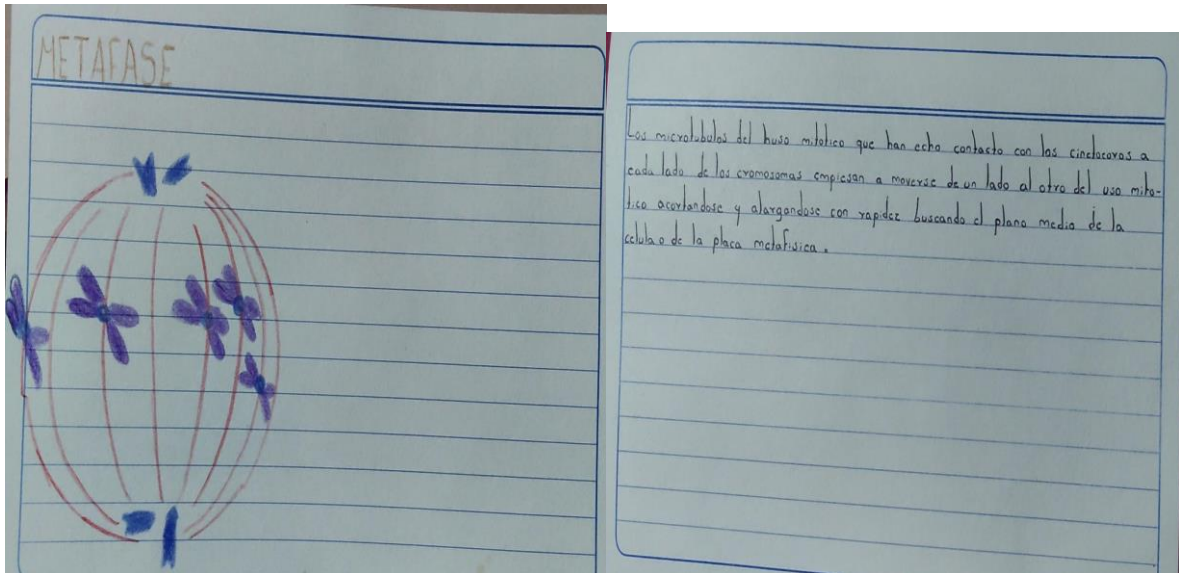 METAFASE
Los microtubulos del huso mitotico que han echo contacto con los cinetocoros a
cada lado de los cromosomas empiesan a moverse de un lado al otro del uso mito-
tico acortandose y alargandose con rapidez buscando el plano medio de la
celula o de la placa metafisica.